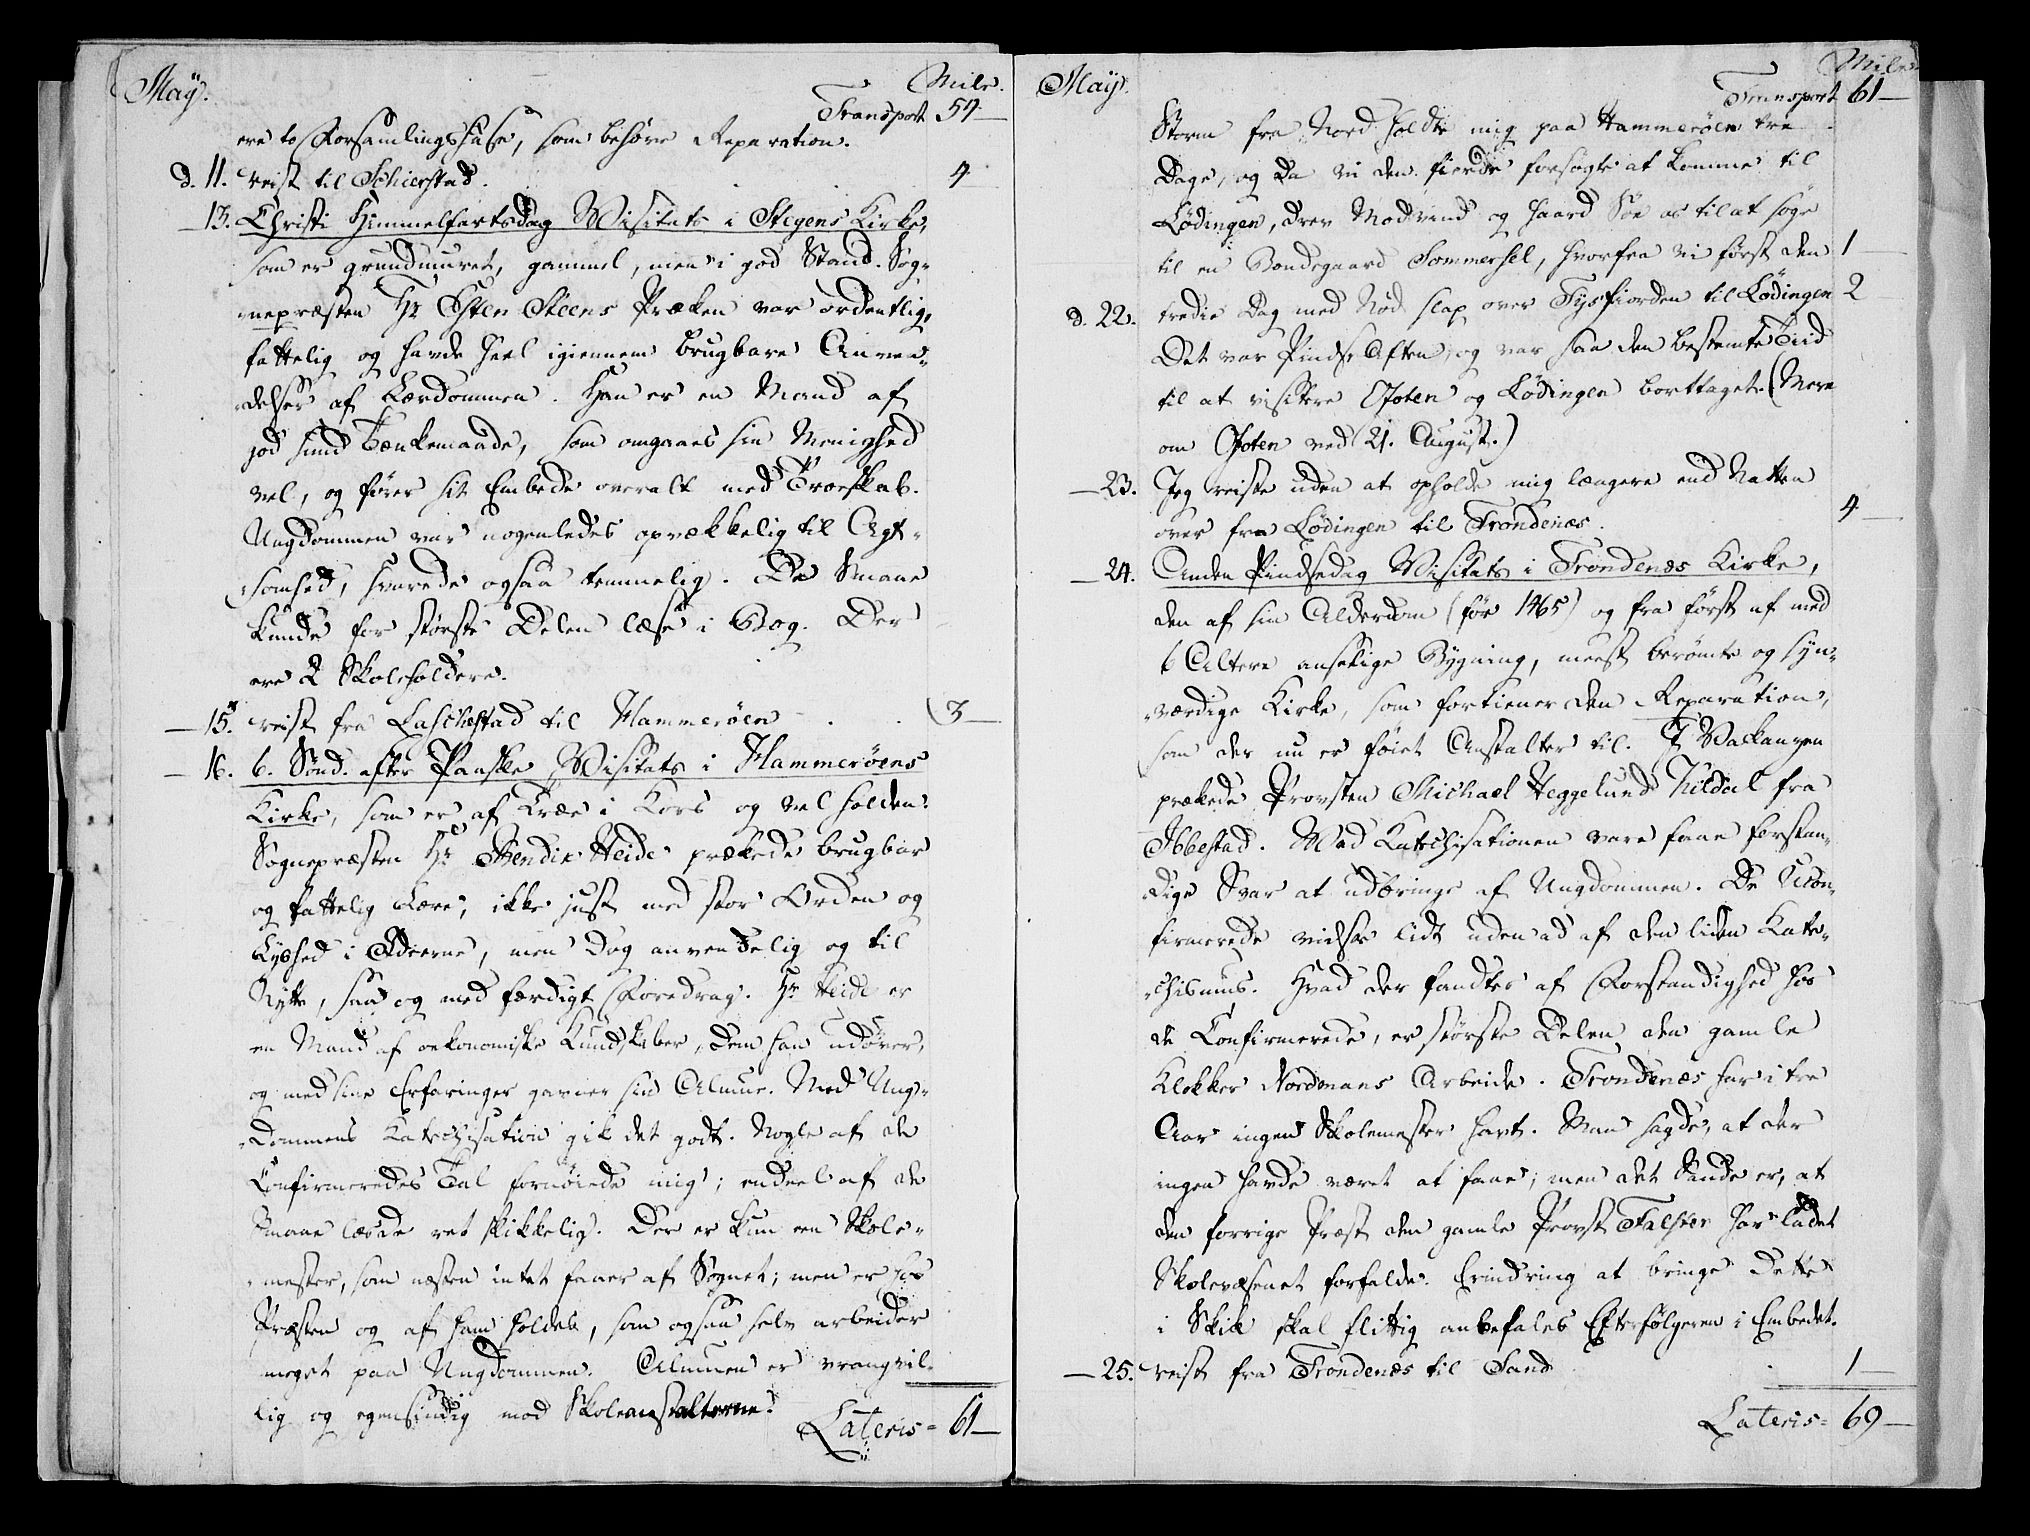 May.
Mile.
Transport 54.
ere to Forsamlingshuse, som behøve Reparation.
d. 11. reist til Schierstad. 4
— 13. Christi Himmelfartsdag Visitats i Stegens Kirke,
som er grundmuret, gammel, men i god Stand. Sog-
nepræsten Hr Sten Steens Præken var ordentlig,
fattelig og havde heel igiennem brugbare Anven-
delser af Lærdommen. Han er en Mand af
god sund Tænkemaade, som omgaaes sin Menighed
vel, og fører sit Embede overalt med Troeskab.
Ungdommen var nogenledes opvækkelig til Agt-
somhed, svarede ogsaa temmelig. De Smaae
kunde for største Delen læse i Bog. Der
ere 2 Skoleholdere.
— 15. reist fra Laschestad til Hammerøen . . 3 —
— 16. 6. Sønd. efter Paaske Visitats i Hammerøens
Kirke, som er af Træe i Kors og vel holden.
Sognepræsten Hr Bendix Heide prækede brugbar
og fattelig Lære, ikke just med stor Orden og
Lyshed i Ideerne, men dog anvendelig og til
Nytte, saa og med færdigt Foredrag. Hr Heide er
en Mand af oekonomiske Kundskaber, dem han udøver,
og med sine Erfaringer gavner sin Almue. Med Ung-
dommens Katechisation gik det godt. Nogle af de
Confirmeredes Tal fornøiede mig; endeel af de
Smaae læsde ret skikkelig. Der er kun een Skole-
mester, som næsten intet faaer af Sognet; men er hos
Præsten og af ham holdes, som ogsaa selv arbeider
meget paa Ungdommen. Almuen er vrangvil-
lig og egensindig mod Skoleanstalterne.
Lateris = 61 —
May.
Mile.
Transport 61 —
Storm fra Nord holdte mig paa Hammerøen tre
Dage, og da vi den fierde forsøgte at komme til
Lødingen, drev Modvind og haard Søe os til at søge
til en Bondegaard Sommersel, hvorfra vi først den 1 —
d. 22. tredie Dag med Nød slap over Tysfiorden til Lødingen 2
Det var Pinds Aften, og var saa den bestemte Tiid
til at visitere Ofoten og Lødingen borttaget. (Mere
om Ofoten ved 21. August.)
— 23. Jeg reiste uden at opholde mig længere end Natten
over fra Lødingen til Trondenæs. 4 —
— 24. Anden Pindsedag Visitats i Trondenæs Kirke,
den af sin Alderdom (før 1465) og fra først af med
6 Altere anselige Bygning, meest berømte og syn-
værdige Kirke, som fortiener den Reparation,
som der nu er føiet Anstalter til. I Vakanzen
prækede Provsten Michael Heggelund Kildal fra
Ibbestad. Ved Katechisationen vare faae forstan-
dige Svar at udbringe af Ungdommen. De Ucon-
firmerede vidste lidt uden ad af den liden Kate-
chismus. Hvad der fandtes af Forstandighed hos
de Confirmerede, er største Delen den gamle
Klokker Nordmans Arbeide. Trondenæs har i tre
Aar ingen Skolemester havt. Man sagde, at der
ingen havde været at faae; men det Sande er, at
den forrige Præst den gamle Provst Falster har ladet
Skolevæsenet forfalde. Erindring at bringe dette
i Skik skal flittig anbefales Efterfølgeren i Embedet.
— 25. reist fra Trondenæs til Sand . 1 —
Lateris = 69 —